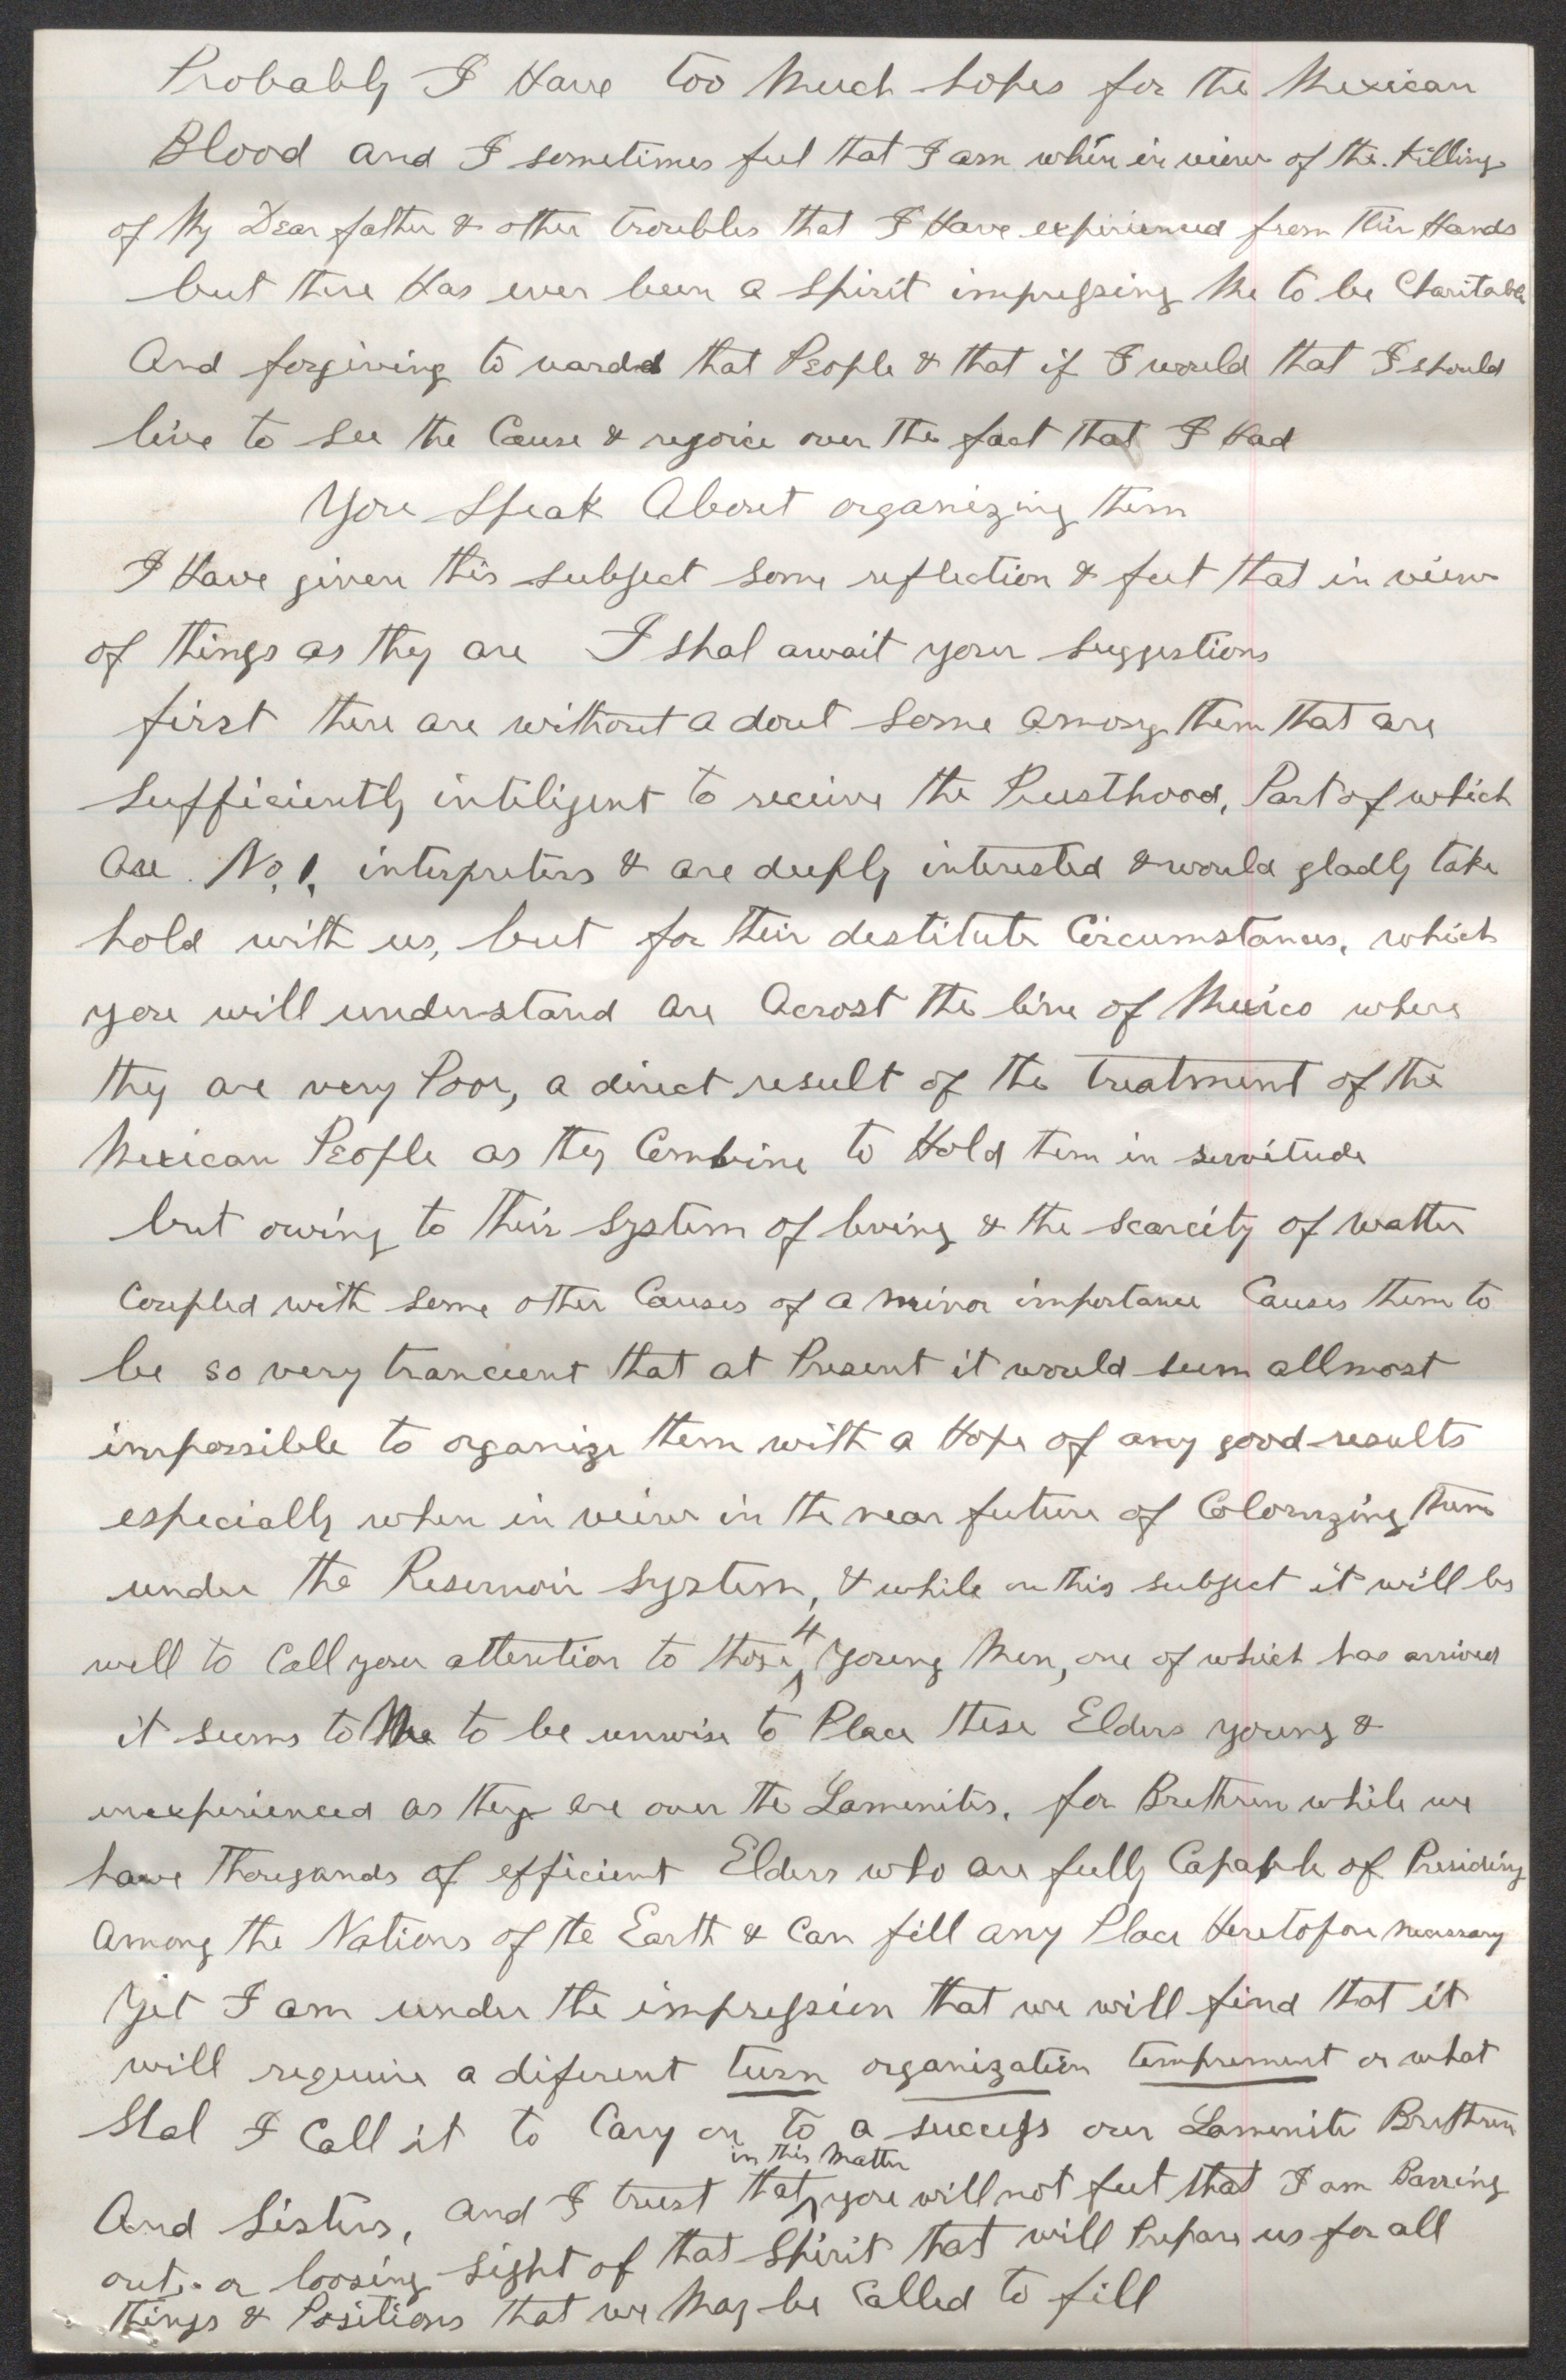 Probably I Have too Much hopes for the Mexican
Blood and I sometimes feel that I am when in view of the killing
of My Dear father & other troubles that I Have expirienced from their Hands
but there Has ever been a Spirit impressing Me to be Charitable
And forgiving to wards that People & that if I would that I should
live to see the Cause & rejoice over the fact that I Had
You Speak About organizing them
I Have given this subject some reflection & feel that in view
of things as they are I shal await your suggestions
first there are without a dout some among them that are
sufficiently inteligent to receive the Priesthood, Part of which
are No. 1, interpreters & are deeply interested & would gladly take
hold with us, but for their destitute Circumstances, which
you will understand are Acrost the line of Mexico where
they are very Poor, a direct result of the treatment of the
Mexican People as they Combine to Hold tem in servitude
but owing to their system of living & the scarcity of watter
Coupled with some other Causes of a minor importance Causes them to
be so very trancient that at Present it would seem allmost
impossible to organize them with a Hope of any good results
especially when in view in the near future of Colonizing them
under the Reservoir system, & while on this subject it will be
well to Call your attention to those 4 Young Men, one of which has arrived
it seems to Me to be unwise to Place these Elders young &
inexperienced as they are over the Lamenites, for Brethren while we
have Thousands of efficient Elders who are fully Capable of Presiding
among the Nations of the Earth & Can fill any Place Heretofore necessary
Yet I am under the impression that we will find that it
will require a diferent turn organization temprement or what
Shal I Call it to Cary on to a success our Lamenite Brethren
And Sisters, and I trust that in this Matter you will not feel that I am Barring
out or loosing sight of that Spirit that will Prepare us for all
things & Positions that we May be Called to fill